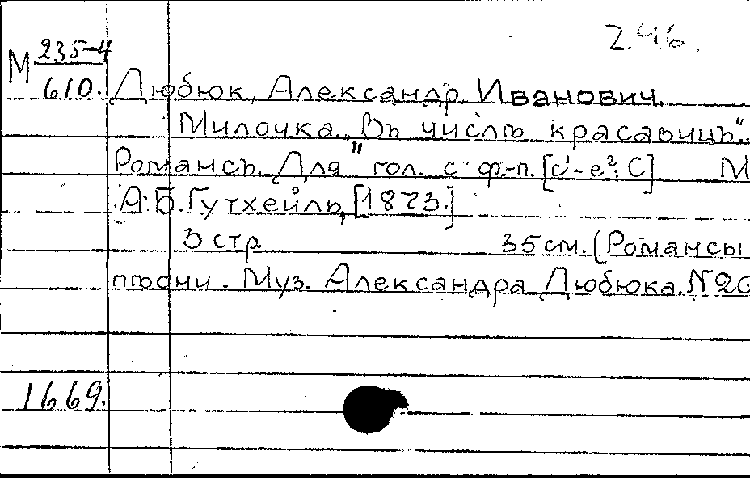 2.46.
М 235-4
610. Дюбюк, Александр Иванович.
Милочка. „Въ числѣ красавицъ".
Романсъ. Для гол. с ф-п. [c¹-e²; C] М
А.Б. Гутхейль, [1873.]
3 стр 35 см. (Романсы
пѣсни. Муз. Александра Дюбюка. №
1669.